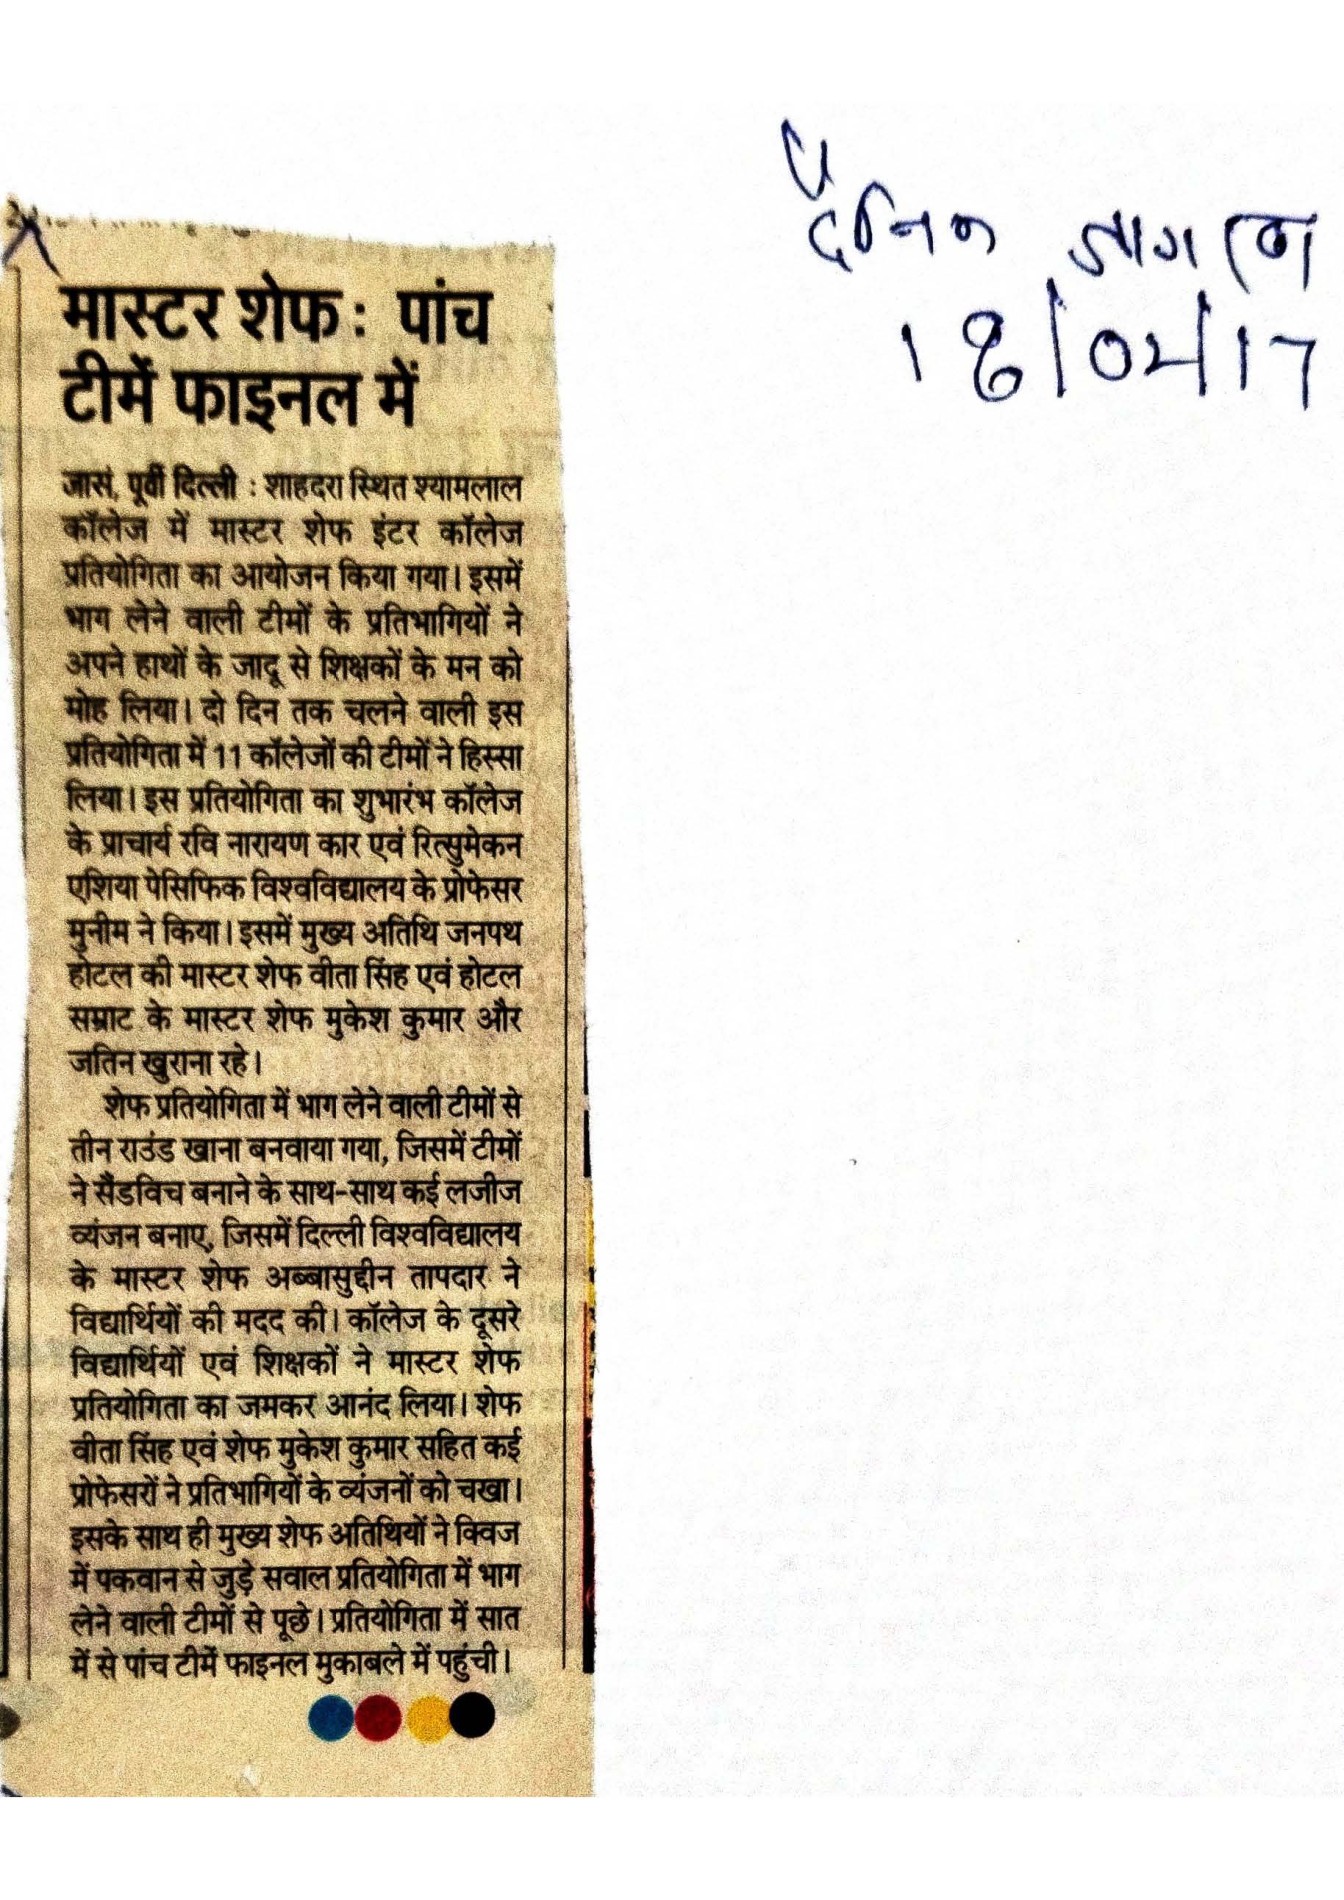 दैनिक जागरण
18/02/17
मास्टर शेफ : पांच
टीमें फाइनल में
जासं, पूर्वी दिल्ली : शाहदरा स्थित श्यामलाल
कॉलेज में मास्टर शेफ इंटर कॉलेज
प्रतियोगिता का आयोजन किया गया। इसमें
भाग लेने वाली टीमों के प्रतिभागियों ने
अपने हाथों के जादू से शिक्षकों के मन को
मोह लिया। दो दिन तक चलने वाली इस
प्रतियोगिता में 11 कॉलेजों की टीमों ने हिस्सा
लिया। इस प्रतियोगिता का शुभारंभ कॉलेज
के प्राचार्य रवि नारायण कार एवं रित्सुमेकन
एशिया पेसिफिक विश्वविद्यालय के प्रोफेसर
मुनीम ने किया। इसमें मुख्य अतिथि जनपथ
होटल की मास्टर शेफ वीता सिंह एवं होटल
सम्राट के मास्टर शेफ मुकेश कुमार और
जतिन खुराना रहे।
शेफ प्रतियोगिता में भाग लेने वाली टीमों से
तीन राउंड खाना बनवाया गया, जिसमें टीमों
ने सैंडविच बनाने के साथ-साथ कई लजीज
व्यंजन बनाए, जिसमें दिल्ली विश्वविद्यालय
के मास्टर शेफ अब्बासुद्दीन तापदार ने
विद्यार्थियों की मदद की। कॉलेज के दूसरे
विद्यार्थियों एवं शिक्षकों ने मास्टर शेफ
प्रतियोगिता का जमकर आनंद लिया। शेफ
वीता सिंह एवं शेफ मुकेश कुमार सहित कई
प्रोफेसरों ने प्रतिभागियों के व्यंजनों को चखा।
इसके साथ ही मुख्य शेफ अतिथियों ने क्विज
में पकवान से जुड़े सवाल प्रतियोगिता में भाग
लेने वाली टीमों से पूछे। प्रतियोगिता में सात
में से पांच टीमें फाइनल मुकाबले में पहुंची।